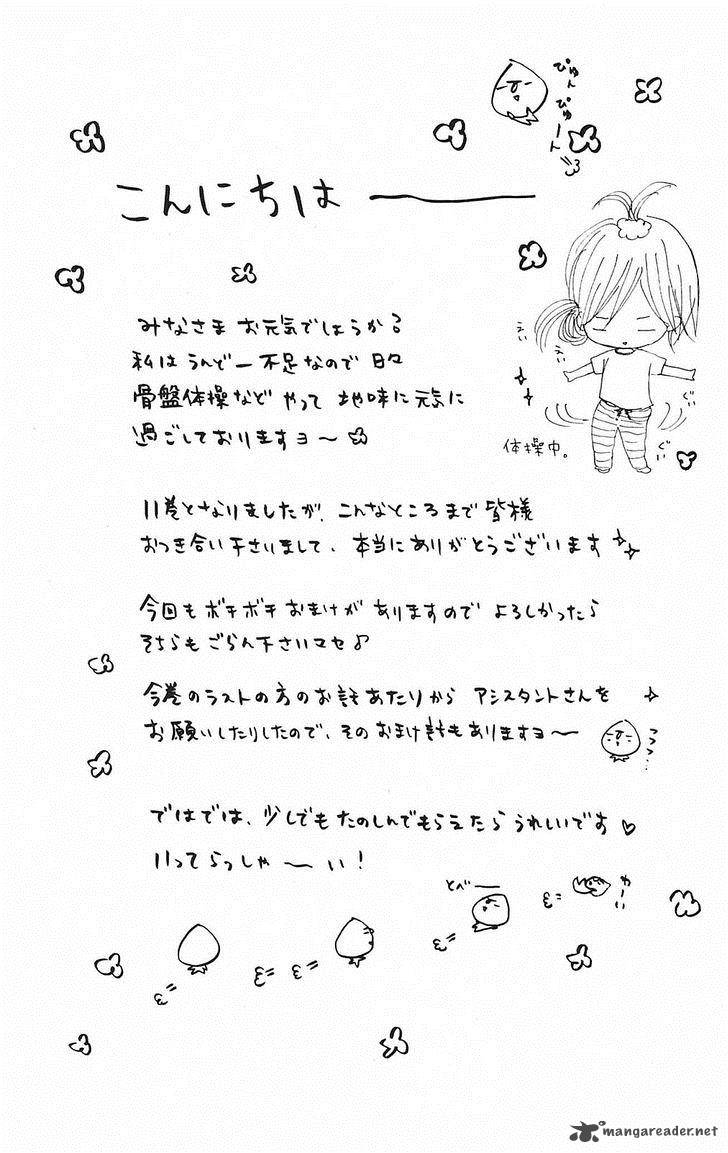 ぴゅん
ぴゅーん
こんにちは――
みなさま お元気でしょうか?
私は うんどー不足なので 日々
骨盤体操など やって 地味に元気に
過ごしておりますヨ〜
えい
えい
ぐい
ぐい
体操中。
11巻となりましたが、こんなところまで 皆様
おつき合い下さいまして、本当にありがとうございます
今回も ボチボチ おまけが ありますので よろしかったら
そちらも ごらん下さいマセ♪
今巻のラストの方のお話あたりから アシスタントさんを
お願いしたりしたので、そのおまけ話もありますヨ〜
フフフ…
ではでは、少しでも たのしんでもらえたら うれしいです♡
いってらっしゃ〜い!
とべー
わーい
mangareader.net